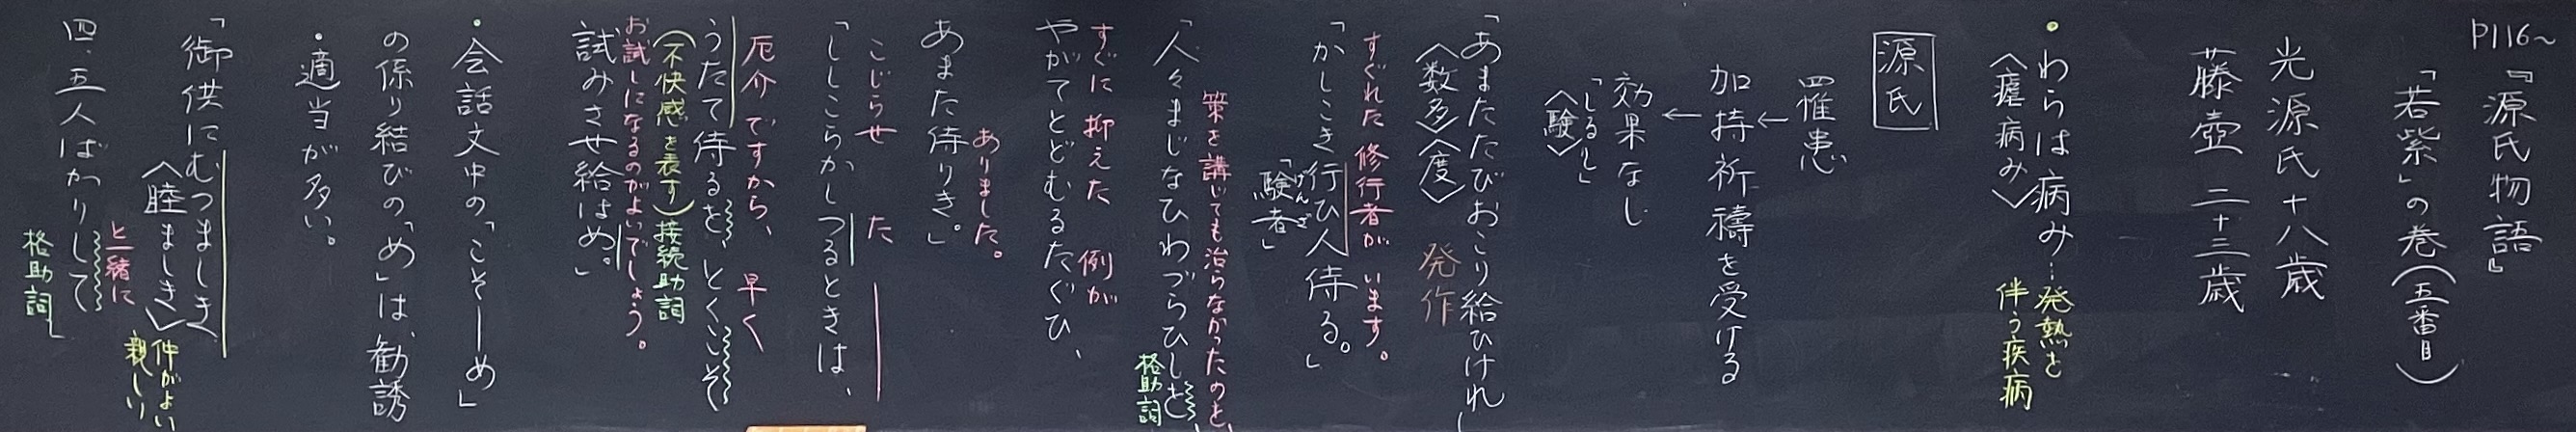 P116~
『源氏物語』
「若紫」の巻(五番目)
光源氏十八歳
藤壺 二十三歳
・わらは病み…発熱を
伴う疾病
〈瘧病み〉
源氏
罹患
↓
加持祈禱を受ける
↓
効果なし
「しるし」
〈験〉
「あまたたびおこり給ひけれ
〈数多〉〈度〉 発作
すぐれた修行者が います。
「かしこき行ひ人侍る。」
げんざ
「験者」
策を講じても治らなかったのを、
「人々まじなひわづらひしを、
格助詞
すぐに抑えた 例が
やがてとどむるたぐひ、
ありました。
あまた侍りき。」
こじらせ た
「ししこらかしつるときは、
厄介ですから、 早く
うたて侍るを、とくこそ
(不快感を表す)接続助詞
お試しになるのがよいでしょう。
試みさせ給はめ。」
・会話文中の「こそ―め」
の係り結びの「め」は、勧誘
・適当が多い。
「御供にむつましき
〈睦ましき〉仲がよい
親しい
と一緒に
四、五人ばかりして
格助詞」